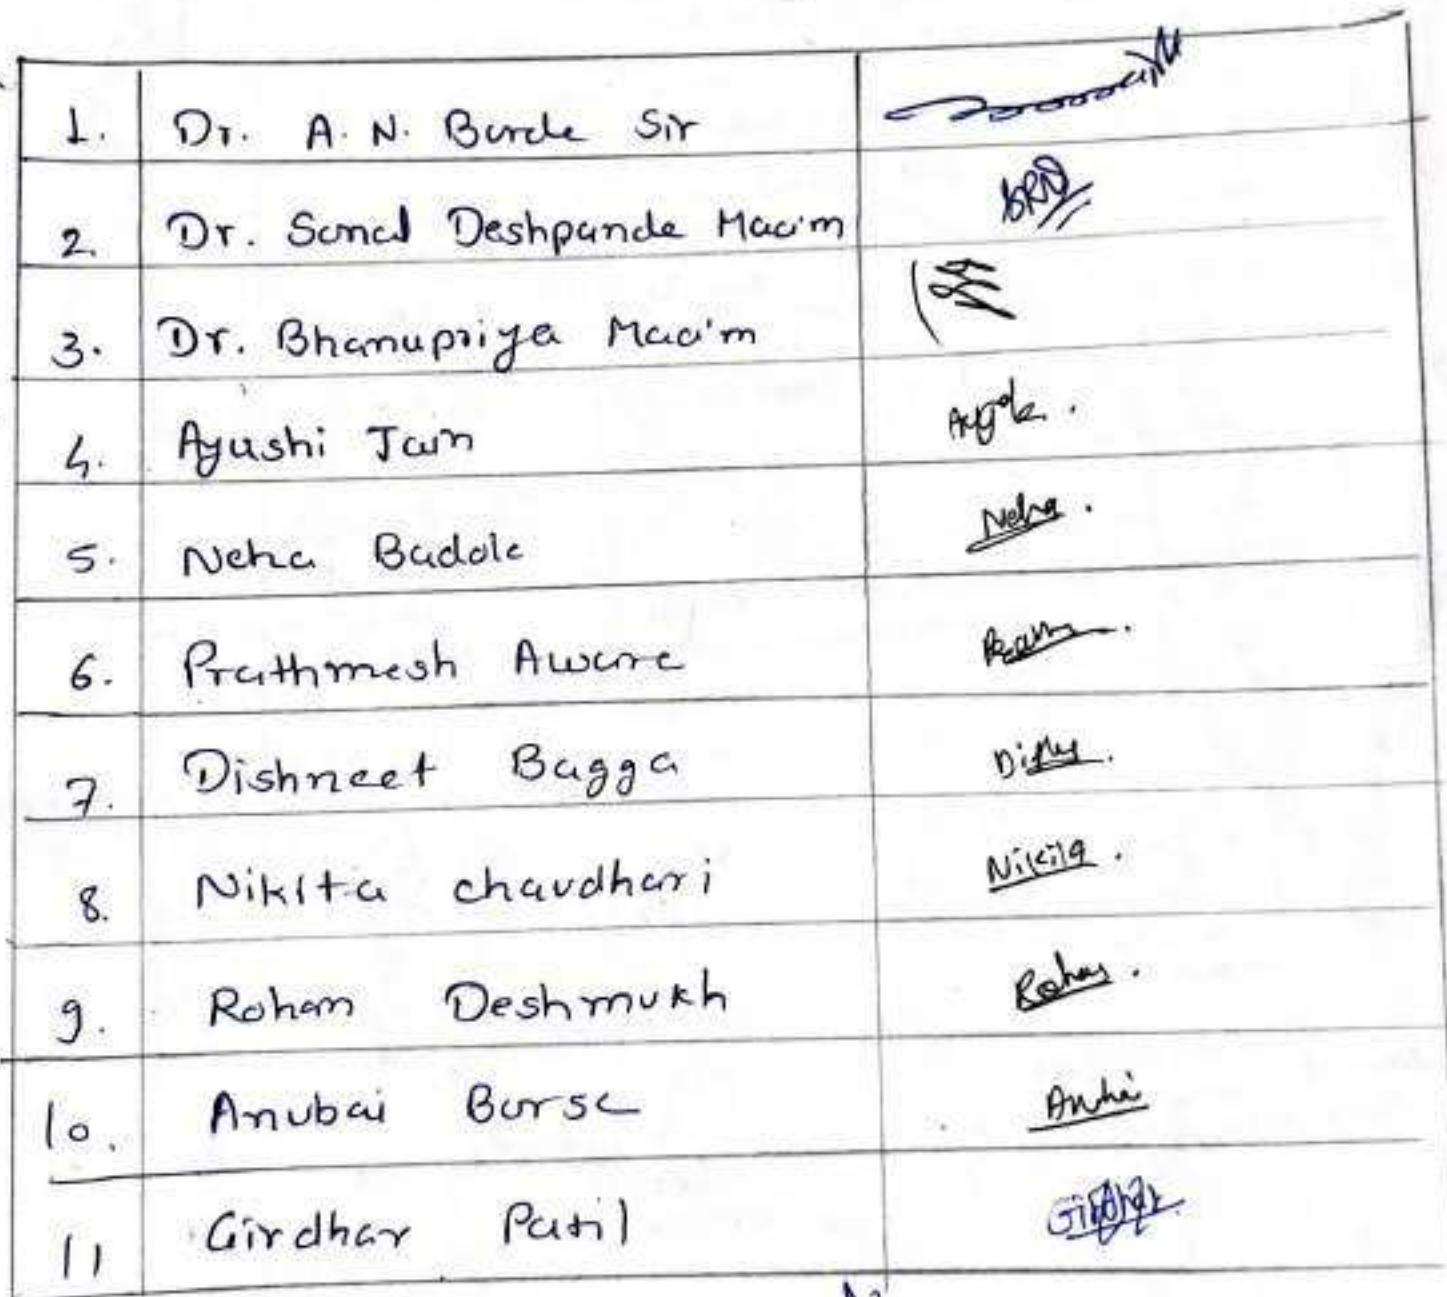 1. Dr. A. N. Barde Sir
2. Dr. Sonal Deshpande Maa'm
3. Dr. Bhanupriya Maa'm
4. Ayushi Jain
5. Neha Badole Neha.
6. Prathmesh Aware
7. Dishneet Bagga
8. Nikita chaudhari Nikita.
9. Rohan Deshmukh Rohan.
10. Anubai Borse
11 Girdhar Patil Girdhar